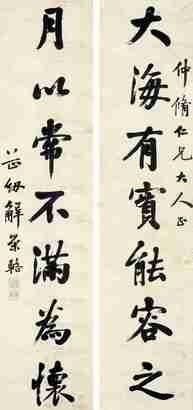 仲脩仁兄大人正
大海有實能容之
月以常不滿為懷
解榮輅